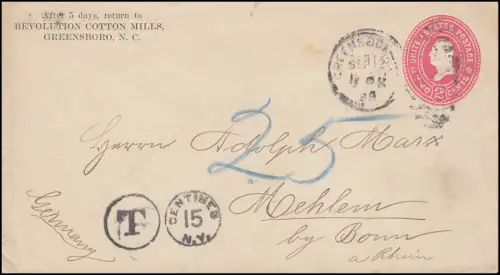 After 5 days, return to
REVOLUTION COTTON MILLS,
GREENSBORO, N. C.
GREENSBORO
SEP 12
UNITED STATES POSTAGE
TWO 2 CENTS
25
Herrn Adolph Marx
Mehlem
by Bonn
a Rhein
Germany
T
CENTIMES
15
N.Y.